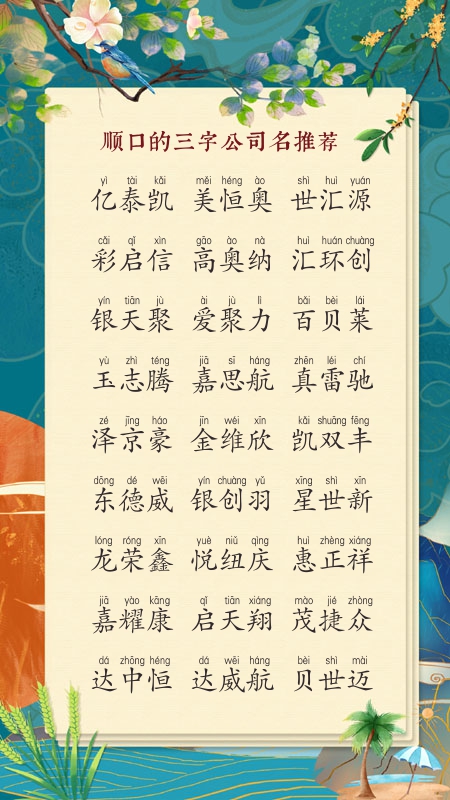 顺口的三字公司名推荐
yì tài kǎi měi héng ào shì huì yuán
亿泰凯 美恒奥 世汇源
cǎi qǐ xìn gāo ào nà huì huán chuàng
彩启信 高奥纳 汇环创
yín tiān jù ài jù lì bǎi bèi lái
银天聚 爱聚力 百贝莱
yù zhì téng jiā sī háng zhēn léi chí
玉志腾 嘉思航 真雷驰
zé jīng háo jīn wéi xīn kǎi shuāng fēng
泽京豪 金维欣 凯双丰
dōng dé wēi yín chuàng yǔ xīng shì xīn
东德威 银创羽 星世新
lóng róng xīn yuè niǔ qìng huì zhèng xiáng
龙荣鑫 悦纽庆 惠正祥
jiā yào kāng qǐ tiān xiáng mào jié zhòng
嘉耀康 启天翔 茂捷众
dá zhōng héng dá wēi háng bèi shì mài
达中恒 达威航 贝世迈